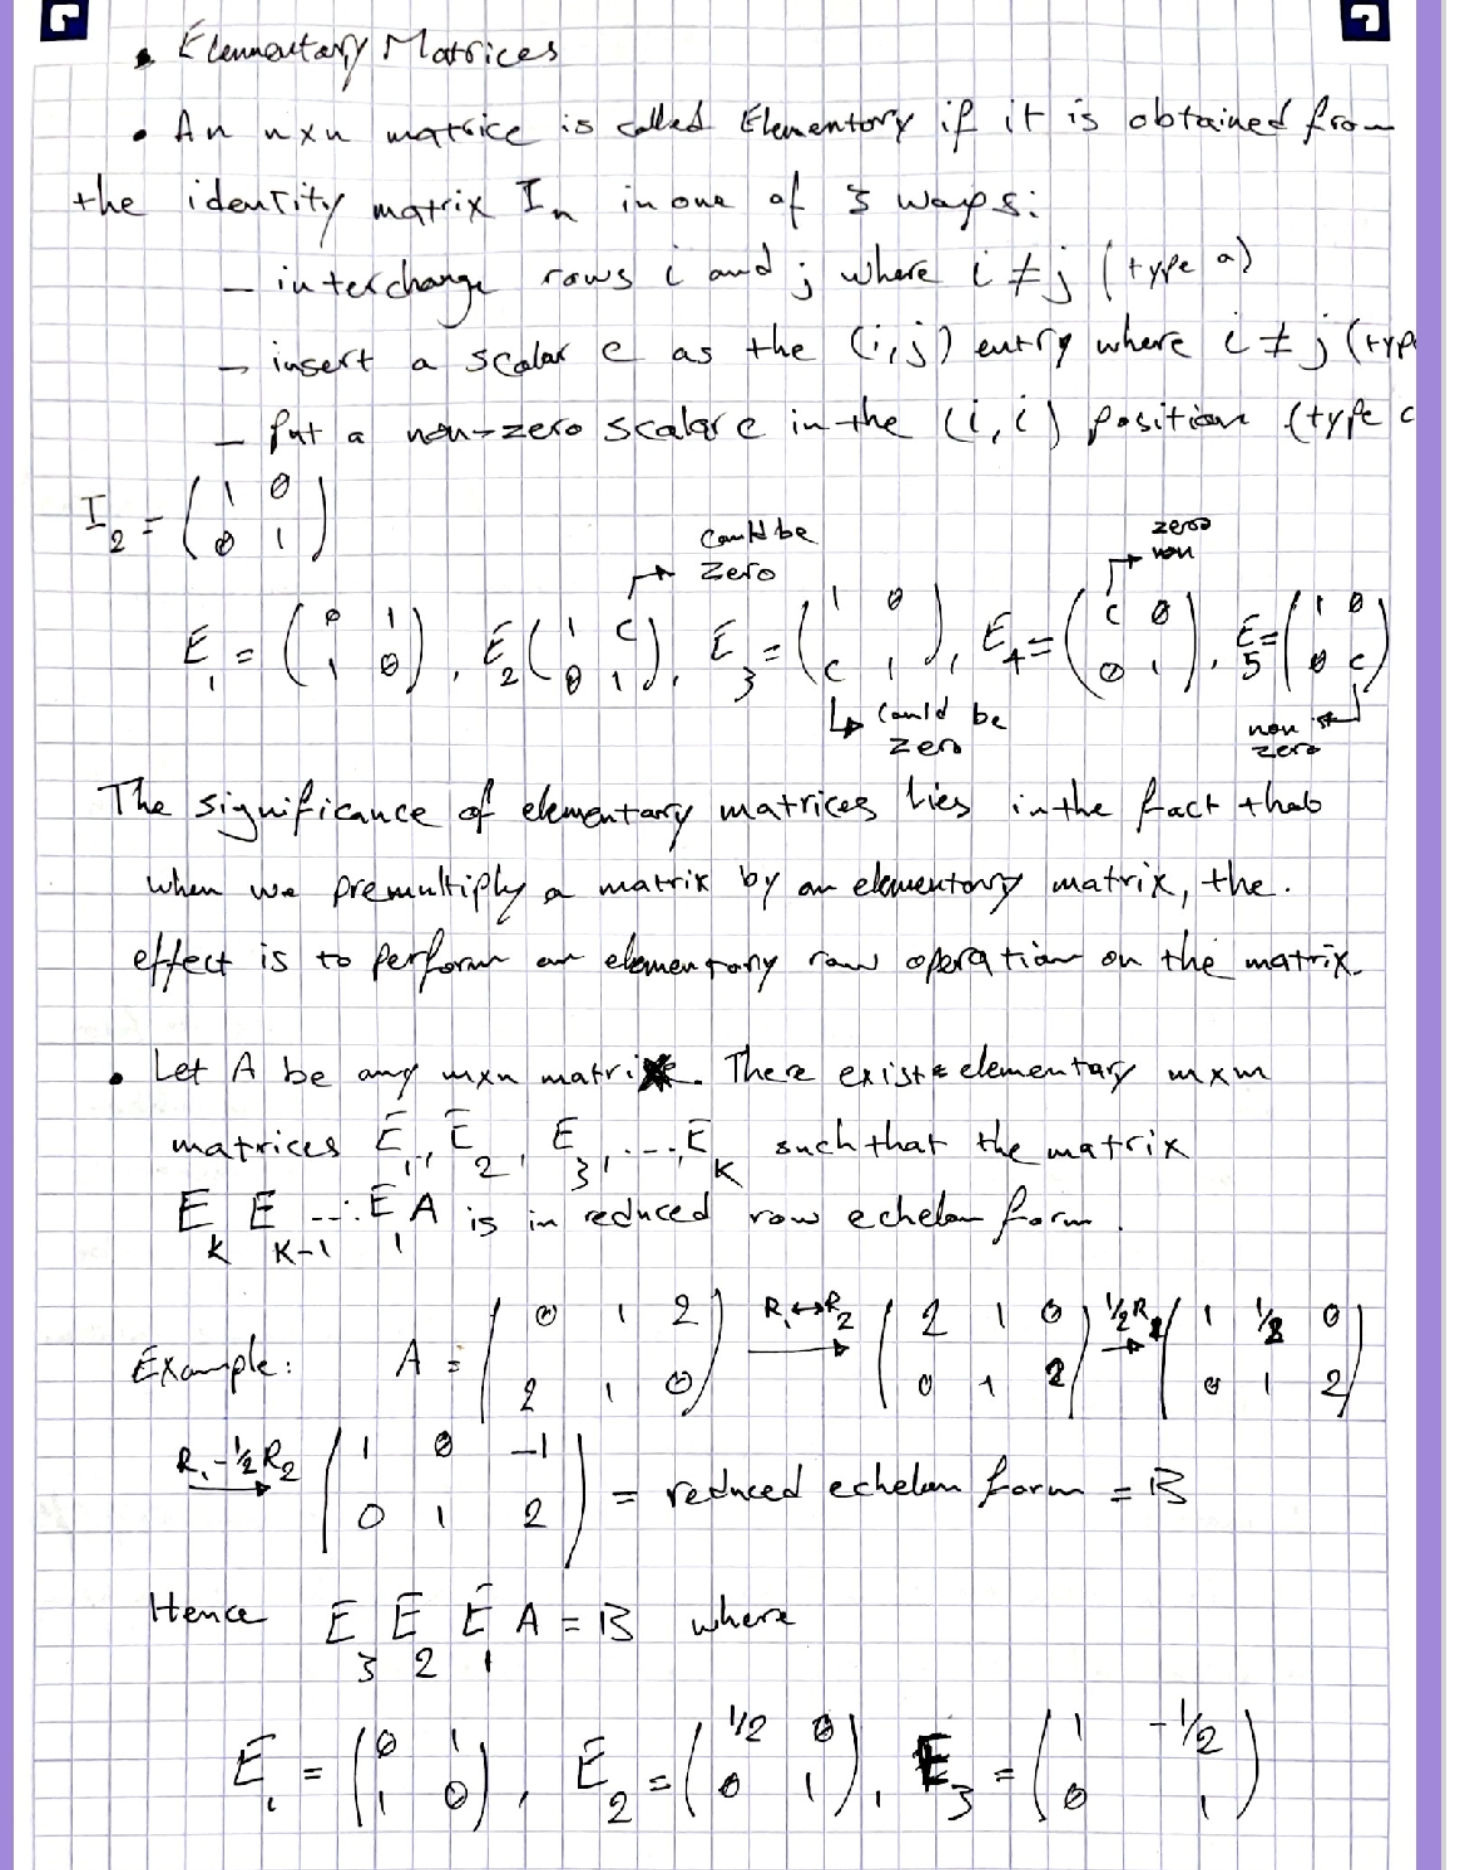 • Elementary Matrices
• An nxn matrice is called Elementary if it is obtained from
the identity matrix I_n in one of 3 ways:
– interchange rows i and j where i ≠ j (type a)
– insert a scalar c as the (i,j) entry where i ≠ j (type
– Put a non-zero scalar c in the (i,i) position (type c
I_2 = (1 0; 0 1)
could be zero
zero non
E_1 = (0 1; 1 0), E_2 (1 c; 0 1), E_3 = (1 0; c 1), E_4 = (c 0; 0 1), E_5 = (1 0; 0 c)
could be zero
non zero
The significance of elementary matrices lies in the fact that
when we premultiply a matrix by an elementary matrix, the.
effect is to perform an elementary row operation on the matrix.
• Let A be any mxn matrix. There exists elementary mxm
matrices E_1, E_2, E_3, ..., E_K such that the matrix
E_K E_K-1 ... E_1 A is in reduced row echelon form.
Example: A = (0 1 2; 2 1 0) R_1 ↔ R_2 → (2 1 0; 0 1 2) 1/2 R_1 → (1 1/2 0; 0 1 2)
R_1 - 1/2 R_2 → (1 0 -1; 0 1 2) = reduced echelon form = B
Hence E_3 E_2 E_1 A = B where
E_1 = (0 1; 1 0), E_2 = (1/2 0; 0 1), E_3 = (1 -1/2; 0 1)